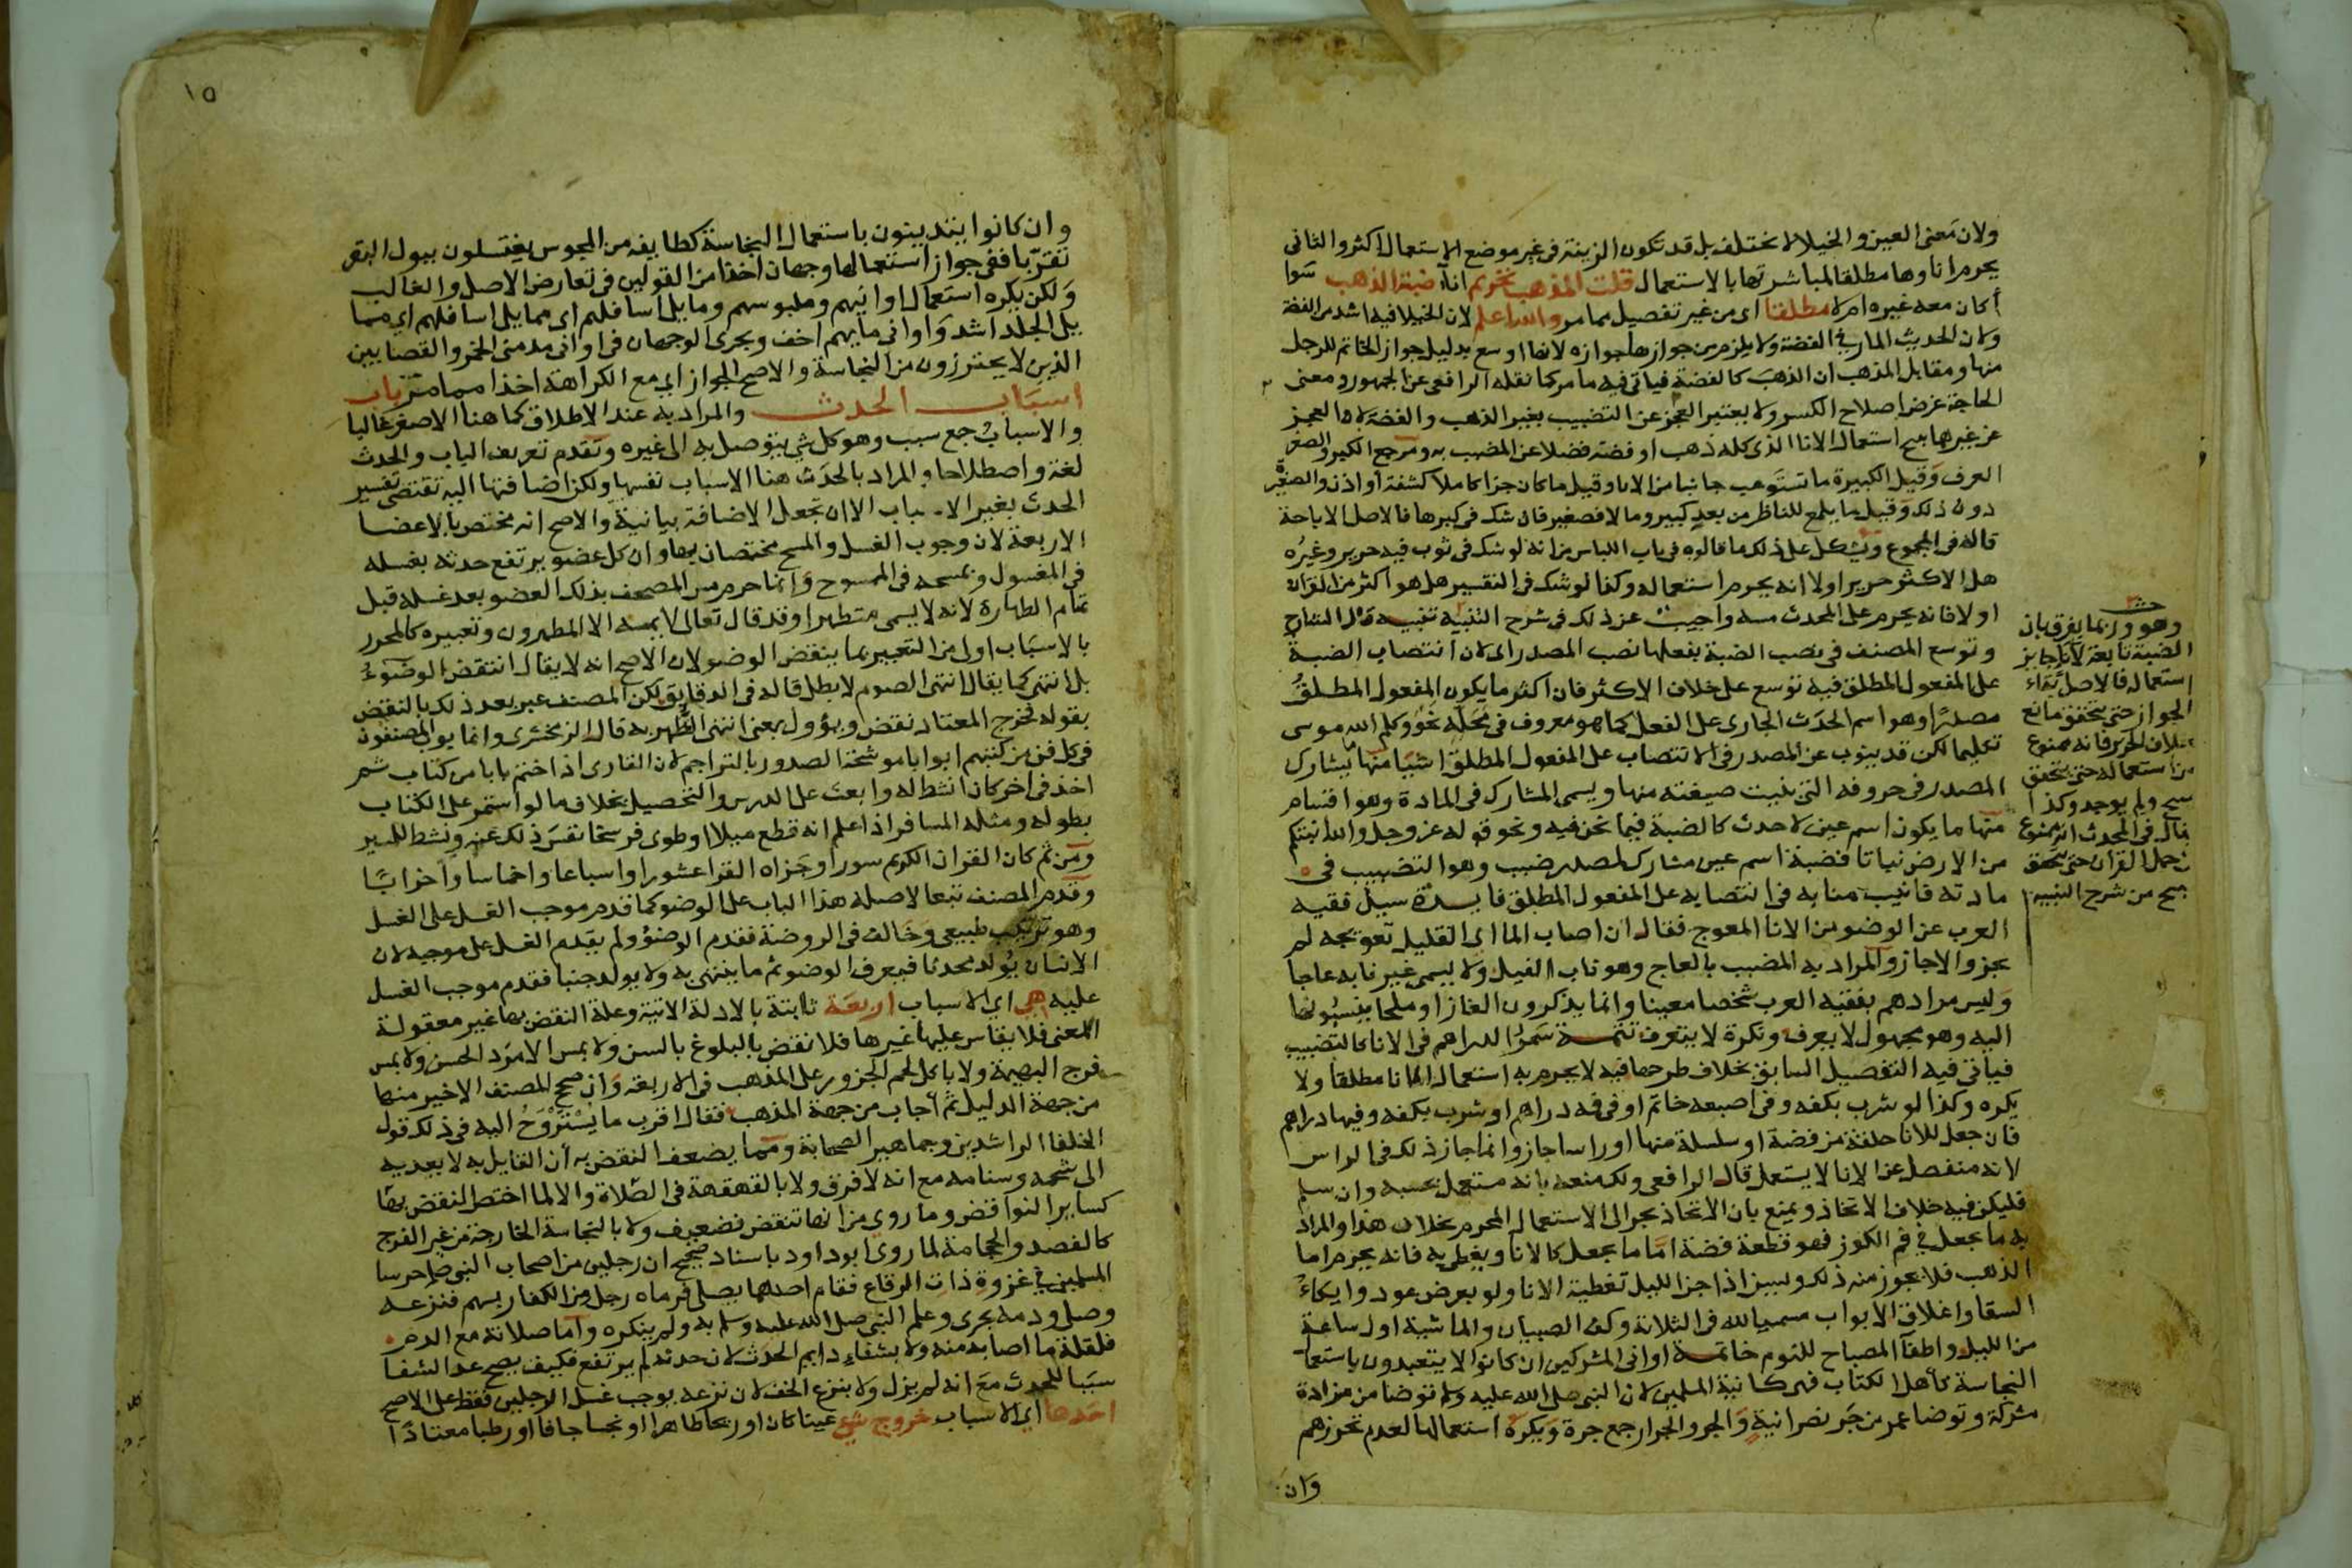 ولان معنى العين والخيلا لا يختلف بل قد تكون الزينة فى غير موضع الاستعمال اكثر والثانى
يحرم اناوها مطلقا لمباشرتها بالاستعمال قلت المذهب تحريم اناء ضبة الذهب سوا
أكان معه غيره ام لا مطلقا اى من غير تفصيل مما مر والله اعلم لان الخيلا فيه اشد من الفضة
ولان الحديث المار فى الفضة ولا يلزم من جوازها جوازه لانها اوسع بدليل جواز الخاتم للرجل
منها ومقابل المذهب ان الذهب كالفضة فياتى فيه ما مر كما نقله الرافعى عن الجمهور ومعنى
الحاجة غرض اصلاح الكسر ولا يعتبر العجز عن التضبيب بغير الذهب والفضة لان العجز
عن غيرهما يبيح استعمال الانا الذى كله ذهب او فضة فضلا عن المضبب به ومرجع الكبر والصغر
العرف وقيل الكبيرة ما تستوعب جانبا من الانا وقيل ما كان جزا كاملا كشفة او اذن والصغيرة
دون ذلك وقيل ما يلمع للناظر من بعد كبير وما لا فصغير فان شك فى كبرها فالاصل الاباحة
قاله فى المجموع ويشكل على ذلك ما قالوه فى باب اللباس من انه لو شك فى ثوب فيه حرير وغيره
هل الاكثر حرير اولا انه يحرم استعماله وكذا لو شك فى التفسير هل هو اكثر من القران
اولا فانه يحرم على المحدث مسه واجيب عن ذلك فى شرح التنبيه تنبيه قال الشارح
وتوسع المصنف فى نصب الضبة بفعلها نصب المصدر اى لان انتصاب الضبة
على المفعول المطلق فيه توسع على خلاف الاكثر فان اكثر ما يكون المفعول المطلق
مصدرا وهو اسم الحدث الجارى على الفعل كما هو معروف فى محله نحو وكلم الله موسى
تكليما لكن قد ينوب عن المصدر فى الانتصاب على المفعول المطلق اشيا منها ما يشارك
المصدر فى حروفه التى بنيت صيغته منها ويسمى المشارك فى المادة وهو اقسام
منها ما يكون اسم عين لا حدث كالضبة فيما نحن فيه ونحو قوله عز وجل والله انبتكم
من الارض نباتا فضبة اسم عين مشارك لمصدر ضبب وهو التضبيب فى
مادته فانيب منابه فى انتصابه على المفعول المطلق فايدة سيل فقيه
العرب عن الوضو من الانا المعوج فقال ان اصاب الما اى القليل تعويجه لم
يجز والا جاز والمراد به المضبب بالعاج وهو ناب الفيل ولا يسمى غير نابه عاجا
وليس مرادهم بفقيه العرب شخصا معينا وانما يذكرون الغازا وملحا ينسبونها
اليه وهو مجهول لا يعرف ونكرة لا يتعرف تتمة سمر الدراهم فى الانا كالتضبيب
فياتى فيه التفصيل السابق بخلاف طرحها فيه لا يحرم به استعمال الانا مطلقا ولا
يكره وكذا لو شرب بكفه وفى اصبعه خاتم او فى فمه دراهم او شرب بكفه وفيها دراهم
فان جعل للانا حلقة من فضة او سلسلة منها او راسا جاز وانما جاز ذلك فى الراس
لانه منفصل عن الانا لا يستعمل قال الرافعى ولك منعه بانه مستعمل بحسبه وان سلم
فليكن فيه خلاف الاتخاذ ويمنع بان الاتخاذ يجر الى الاستعمال المحرم بخلاف هذا والمراد
به ما يجعل فى فم الكوز فهو قطعة فضة اما ما يجعل كالانا ويغطى به فانه يحرم اما
الذهب فلا يجوز منه ذلك ويسن اذا جن الليل تغطية الانا ولو بعرض عود وايكاء
السقا واغلاق الابواب مسميا لله فى الثلاثة وكف الصبيان والماشية اول ساعة
من الليل واطفا المصباح للنوم خاتمة اوانى المشركين ان كانوا لا يتعبدون باستعما
النجاسة كأهل الكتاب فهى كانية المسلمين لان النبى صلى الله عليه وسلم توضا من مزادة
مشركة وتوضا عمر من جر نصرانية والجر والجرار جمع جرة ويكره استعمالها لعدم تحرزهم
وان
وهو وربما يفرق بان
الضبة تابعة لانا جايز
استعماله فالاصل بقاء
الجواز حتى يتحقق مانع
بخلاف الحرير فانه ممنوع
من استعماله حتى يتحقق
مبيح ولم يوجد وكذا
يقال فى المحدث انه ممنوع
من حمل القران حتى يتحقق
مبيح من شرح التنبيه
١٥
وان كانوا يتدينون باستعمال النجاسة كطايفه من المجوس يغتسلون ببول البقر
تقربا ففى جواز استعمالها وجهان اخذا من القولين فى تعارض الاصل والغالب
ولكن يكره استعمال اوانيهم وملبوسهم وما يلى اسافلهم اى مما يلى اسافلهم اى مما
يلى الجلد اشد واوانى مايهم اخف ويجرى الوجهان فى اوانى مدمنى الخمر والقصابين
الذين لا يحترزون من النجاسة والاصح الجواز اى مع الكراهة اخذا مما مر باب
اسباب الحدث والمراد به عند الاطلاق كما هنا الاصغر غالبا
والاسباب جمع سبب وهو كل شى يتوصل به الى غيره وتقدم تعريف الباب والحدث
لغة واصطلاحا والمراد بالحدث هنا الاسباب نفسها ولكن اضافتها اليه تقتضى تفسير
الحدث بغير الاسباب الا ان تجعل الاضافة بيانية والاصح انه مختص بالاعضا
الاربعة لان وجوب الغسل والمسح مختصان بها وان كل عضو يرتفع حدثه بغسله
فى المغسول وبمسحه فى الممسوح وانما حرم مس المصحف بذلك العضو بعد غسله قبل
تمام الطهارة لانه لا يسمى متطهرا وقد قال تعالى لا يمسه الا المطهرون وتعبيره كالمحرر
بالاسباب اولى من التعبير بما ينقض الوضو لان الاصح انه لا يقال انتقض الوضوء
بل انتهى كما يقال انتهى الصوم لا بطل قاله فى الدقايق لكن المصنف عبر بعد ذلك بالنقض
بقوله فخرج المعتاد نقض ويؤول بمعنى انتهى الطهر به قال الزمخشرى وانما يوب المصنفون
فى كل فن من كتبهم ابوابا موشحة الصدور بالتراجم لان القارى اذا ختم بابا من كتاب ثم
اخذ فى اخر كان انشط له وابعث على الدرس والتحصيل بخلاف ما لو استمر على الكتاب
بطوله ومثله المسافر اذا علم انه قطع ميلا او طوى فرسخا نفس ذلك عنه ونشط للسير
ومن ثم كان القران الكريم سورا وجزاه القرا عشورا واسباعا واخماسا واحزابا
وقدم المصنف تبعا لاصله هذا الباب على الوضو كما قدم موجب الغسل على الغسل
وهو ترتيب طبيعى وخالف فى الروضة فقدم الوضؤ ولم يقدم الغسل على موجبه لان
الانسان يولد محدثا فيعرف الوضو ثم ما ينتهى به ولا يولد جنبا فقدم موجب الغسل
عليه هى اى الاسباب اربعة ثابتة بالادلة الاتية وعلة النقض بها غير معقولة
المعنى فلا يقاس عليها غيرها فلا نقض بالبلوغ بالسن ولا بمس الامرد الحسن ولا بمس
فرج البهيمة ولا باكل لحم الجزور على المذهب فى الاربعة وان صحح المصنف الاخير منها
من جهة الدليل ثم أجاب من جهة المذهب فقال اقرب ما يستروح اليه فى ذلك قول
الخلفا الراشدين وجماهير الصحابة ومما يضعف النقض به أن القايل به لا يعديه
الى شحمه وسنامه مع انه لا فرق ولا بالقهقهة فى الصلاة والا لما اختص النقض بها
كساير النواقض وما روى من انها تنقض فضعيف ولا بالنجاسة الخارجة من غير الفرج
كالفصد والحجامة لما روى ابو داود باسناد صحيح ان رجلين من اصحاب النبى صلعم حرسا
المسلمين فى غزوة ذات الرقاع فقام احدهما يصلى فرماه رجل من الكفار بسهم فنزعه
وصلى ودمه يجرى وعلم النبى صلى الله عليه وسلم به ولم ينكره وأما صلاته مع الدم
فلقلة ما اصابه منه ولا بشفاء دايم الحدث لان حدثه لم يرتفع فكيف يصح عد الشفا
سببا للحدث مع انه لم يزل ولا بنزع الخف لان نزعه يوجب غسل الرجلين فقط على الاصح
احدها اى الاسباب خروج شى عينا كان او ريحا طاهرا او نجسا جافا او رطبا معتادا